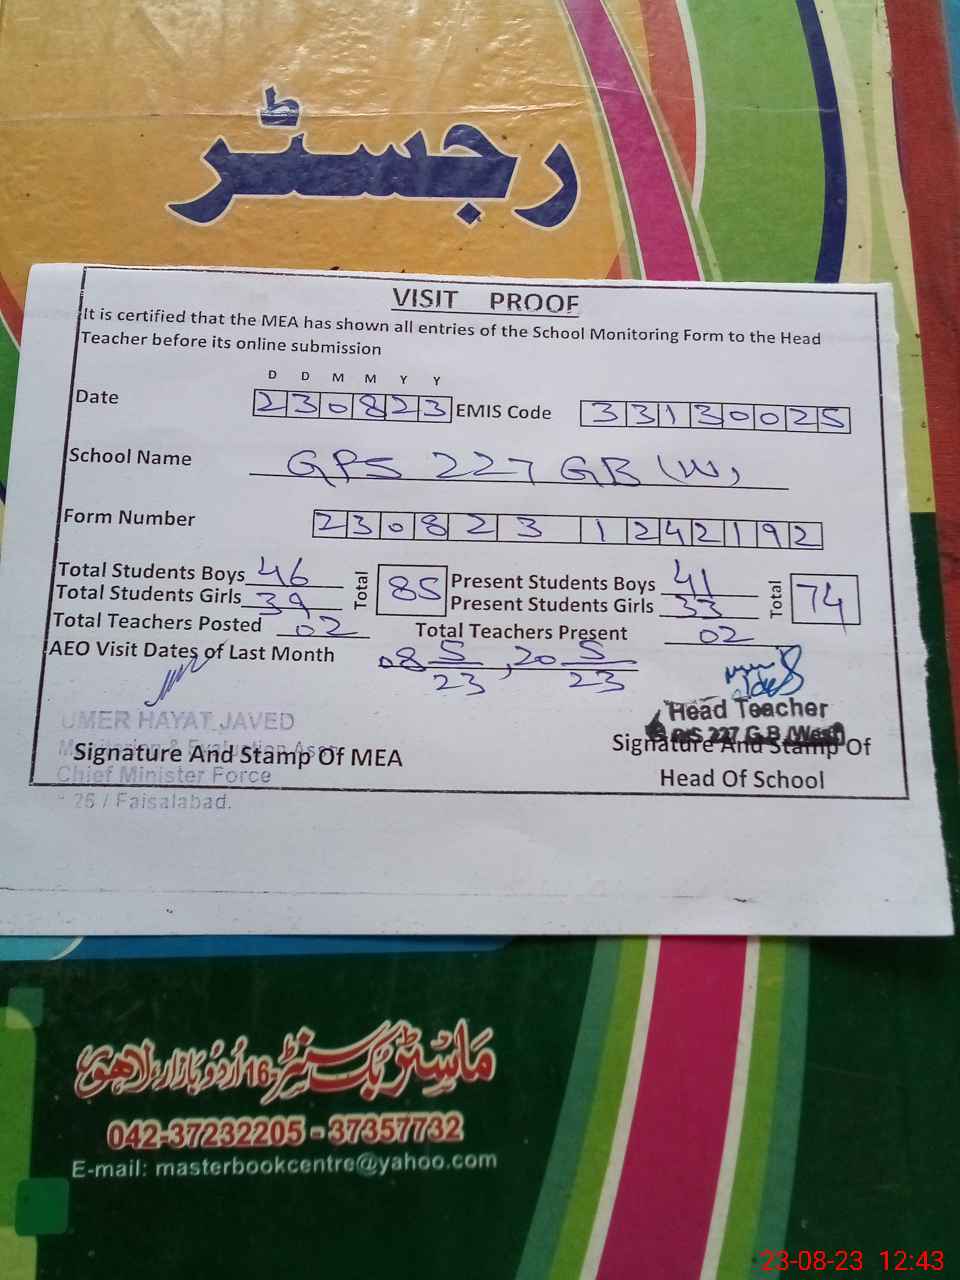 رجسٹر
VISIT PROOF
It is certified that the MEA has shown all entries of the School Monitoring Form to the Head
Teacher before its online submission
D D M M Y Y
Date 230823 EMIS Code 33130025
School Name GPS 227 GB (W)
Form Number 230823 1242192
Total Students Boys 46 Total 85 Present Students Boys 41 Total 74
Total Students Girls 39 Present Students Girls 33
Total Teachers Posted 02 Total Teachers Present 02
AEO Visit Dates of Last Month 08 5/23, 20 5/23
UMER HAYAT JAVED
Head Teacher
227 G.B (West)
Monitoring & Evaluation Assn.
Signature And Stamp Of MEA
Signature And Stamp Of
Head Of School
Chief Minister Force
26 / Faisalabad.
ماسٹر بک سنٹر 16-اُردو بازار، لاہور
042-37232205 - 37357732
E-mail: masterbookcentre@yahoo.com
23-08-23 12:43